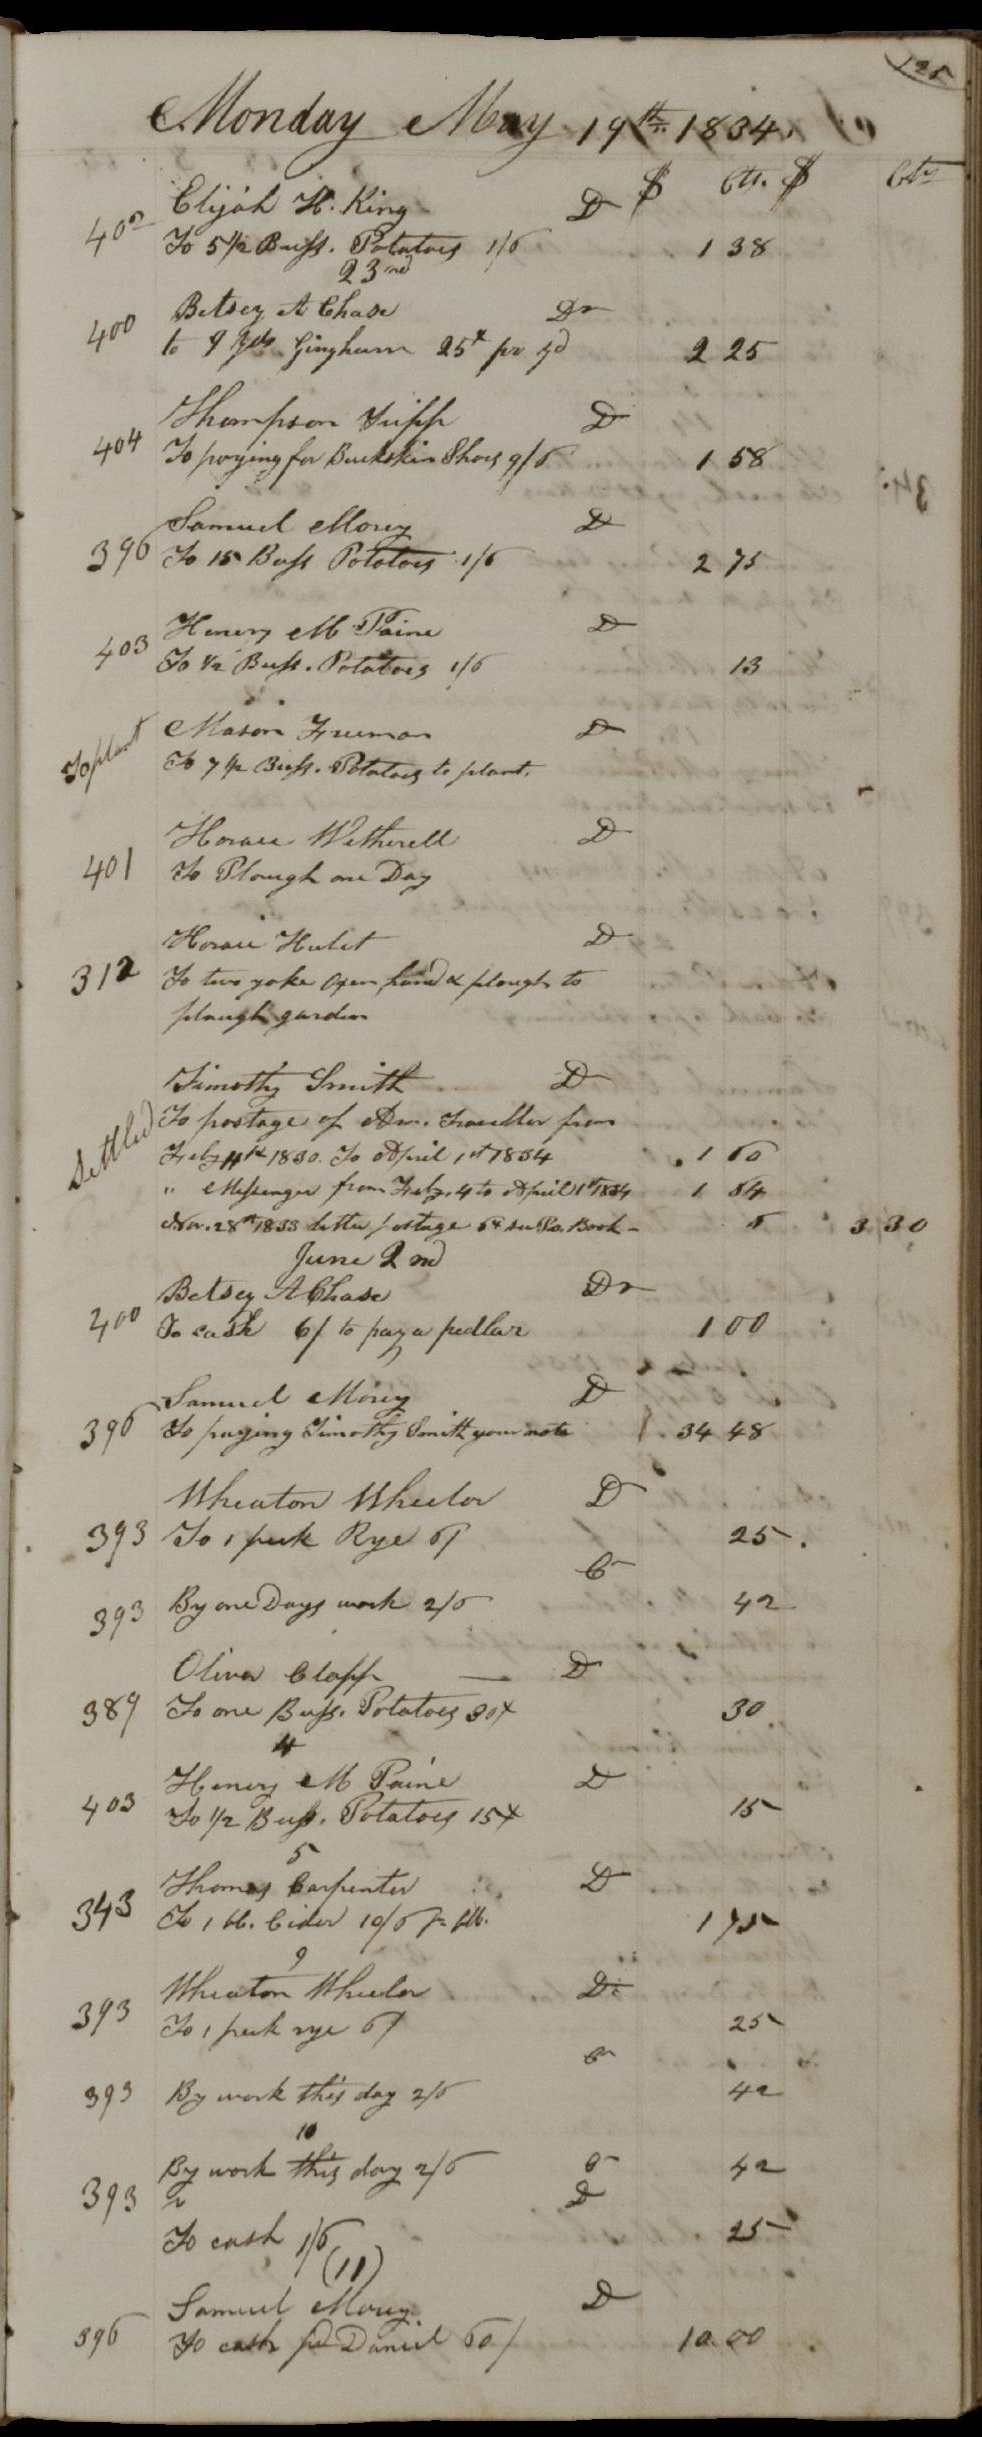 125
Monday May 19th 1834
$ Cts. $ Cts
Elijah H. King D
402 To 5 1/2 Buss. Potatoes 1/6 1 38
23nd
Betsey A Chase Dr
400 to 9 Yds Gingham 25 pr yd 2 25
Thompson Tripp D
404 To paying for Buckskin Shoes 9/6 1 58
Samuel Morey D
396 To 15 Buss Potatoes 1/6 2 75
Henery M Paine D
403 To 1/2 Buss. Potatoes 1/6 13
Mason Freeman D
To plant To 7 1/2 Buss. Potatoes to plant.
Horace Wetherell D
401 To Plough one Day
Horace Hulet D
312 To two yoke Oxen hand & plough to
plough garden
Timothy Smith D
Settled To postage of Am. Traveller from
Feby 11th 1830. To April 1st 1834 1 60
" Messenger from Feby. 4 to April 1st 1834 1 64
Nov. 28th 1833 letter postage 6 see Po. Book 6 3 30
June 2nd
Betsey A Chase Dr
400 To cash 6/ to pay a pedlar 1 00
Samuel Morey D
396 To paying Timothy Smith your note 34 48
Wheaton Wheelor D
393 To 1 peck Rye 25
Cr
393 By one Days work 2/6 42
Oliver Clapp D
389 To one Buss. Potatoes 30 30
4
Henery M Paine D
403 To 1/2 Buss. Potatoes 15 15
5
Thomas Carpenter D
343 To 1 bb. Cider 10/6 pr bb. 1 75
9
Wheaton Wheelor Dr
393 To 1 peck rye 25
Cr
393 By work this day 2/6 42
10
By work this day 2/6 Cr 42
393 D
To cash 1/6 25
(11)
Samuel Morey D
396 To cash pd Daniel 60/ 10.00